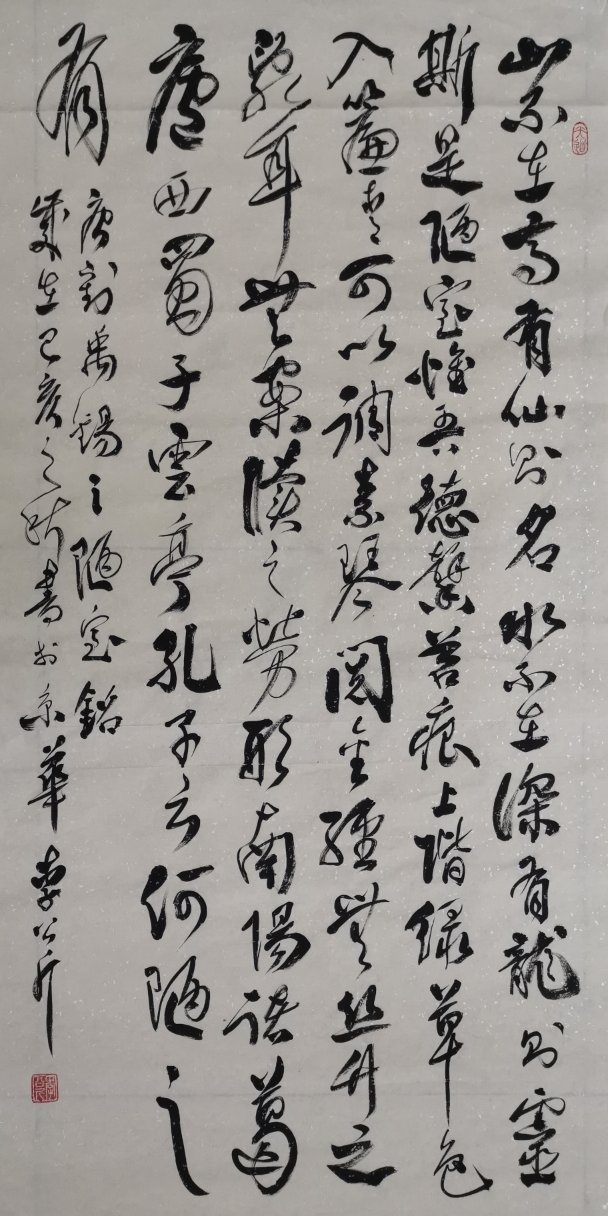 山不在高有仙则名水不在深有龍则靈
斯是陋室惟吾德馨苔痕上階緑草色
入簾青可以調素琴閲金經無丝竹之
亂耳無案牘之勞形南陽諸葛
廬西蜀子雲亭孔子云何陋之
有
唐劉禹錫之陋室銘
歲在己亥之秋書於京華 李